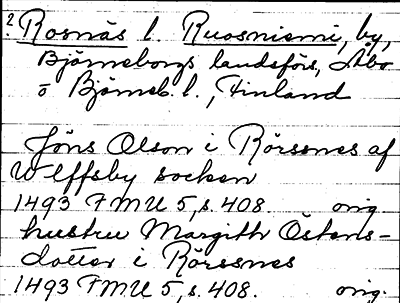 ? Rosnäs l. Ruosniemi, by,
Björneborgs landsförs, Åbo
o Björneb. l., Finland
Jöns Olson i Rörssnes af
Wlffsby socken
1493 FMU 5, s. 408. orig.
hustru Margith Östens-
dotter i Rörssnes
1493 FMU 5, s. 408. orig.